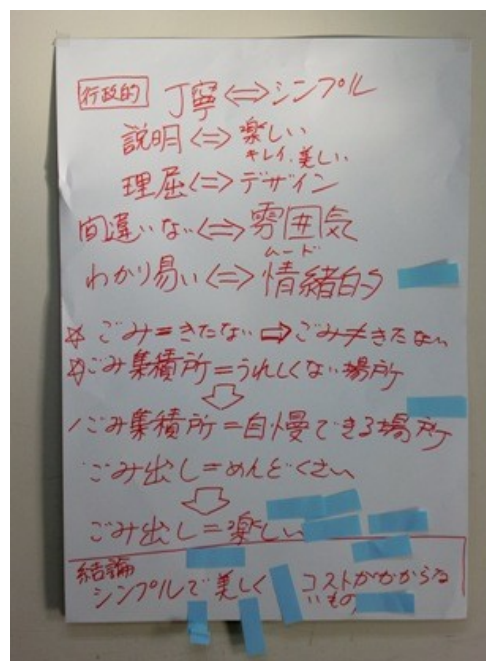 行政的 丁寧⇔シンプル
説明⇔楽しい
キレイ、美しい
理屈⇔デザイン
間違いない⇔雰囲気
ムード
わかり易い⇔情緒的
☆ごみ=きたない⇨ごみ≠きたない
☆ごみ集積所=うれしくない場所
⇩
ごみ集積所=自慢できる場所
ごみ出し=めんどくさい
⇩
ごみ出し=楽しい
結論
シンプルで美しく コストがかからな
いもの